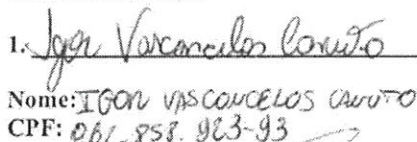 1. Igor Vasconcelos Canuto
Nome: IGOR VASCONCELOS CANUTO
CPF: 061.858.923-93